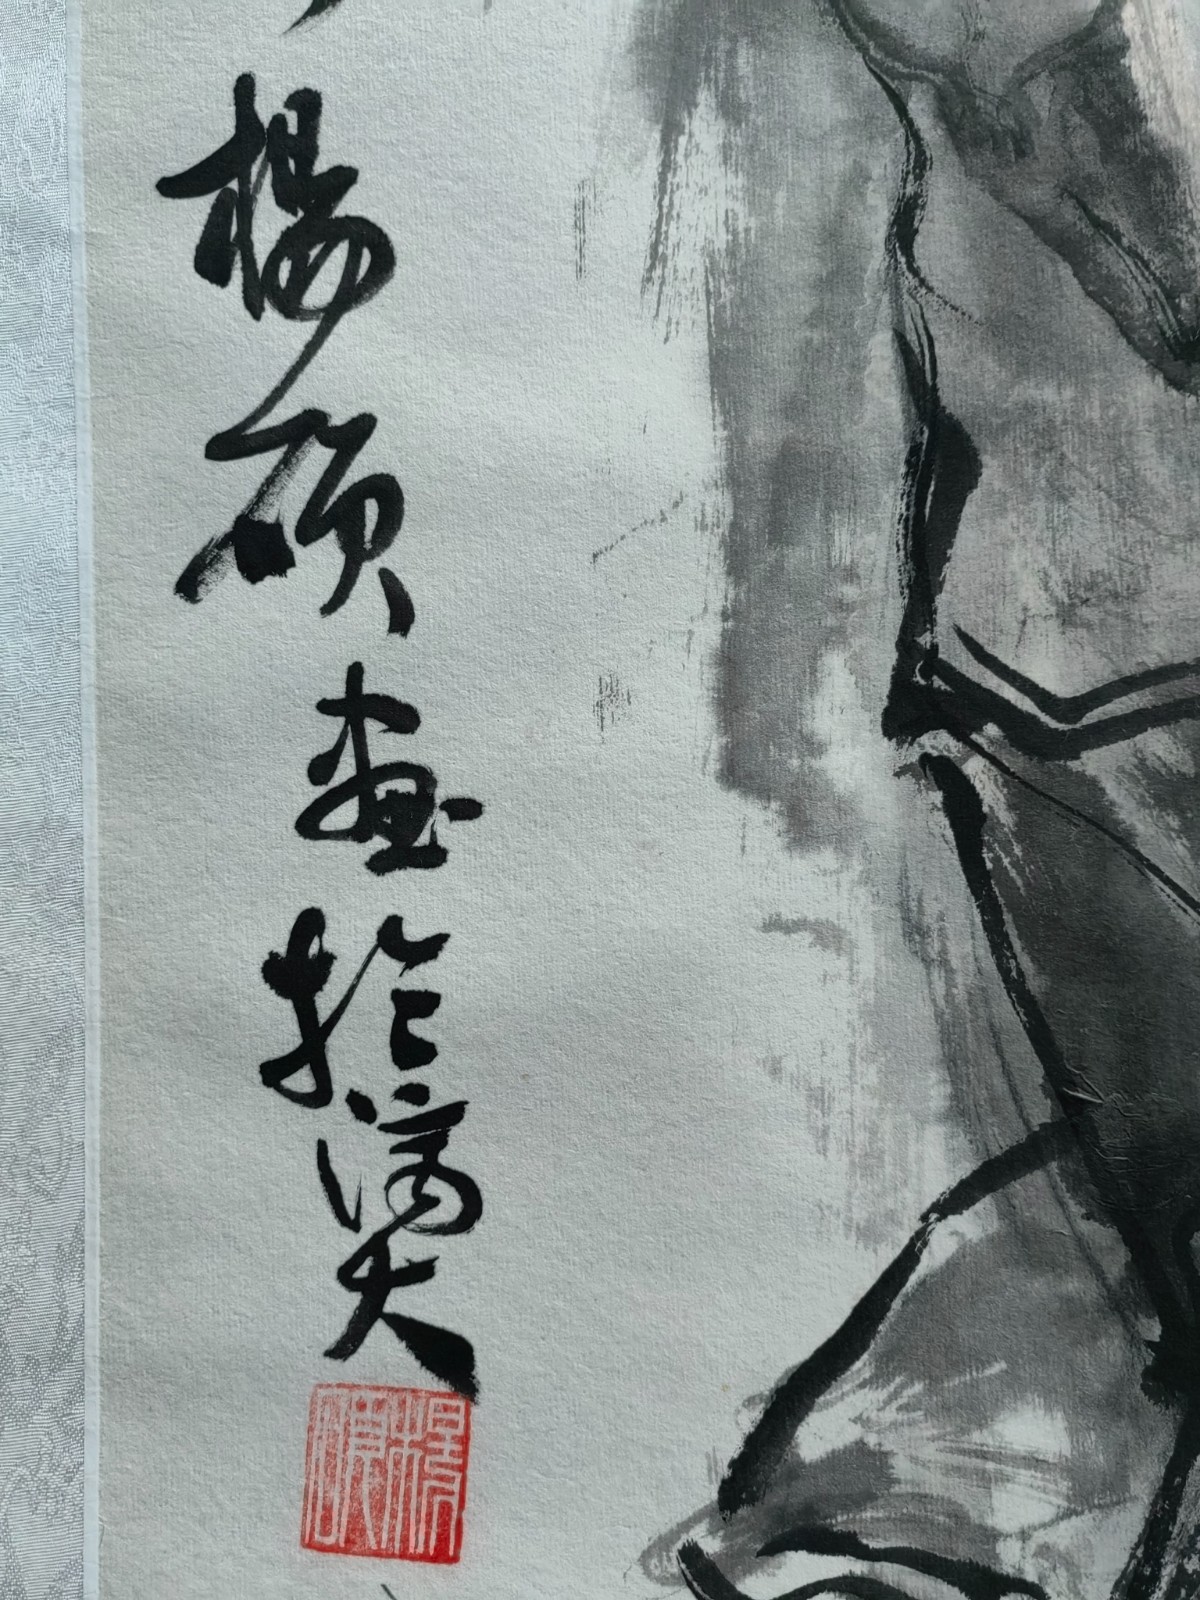 楊碩畫於大
楊碩